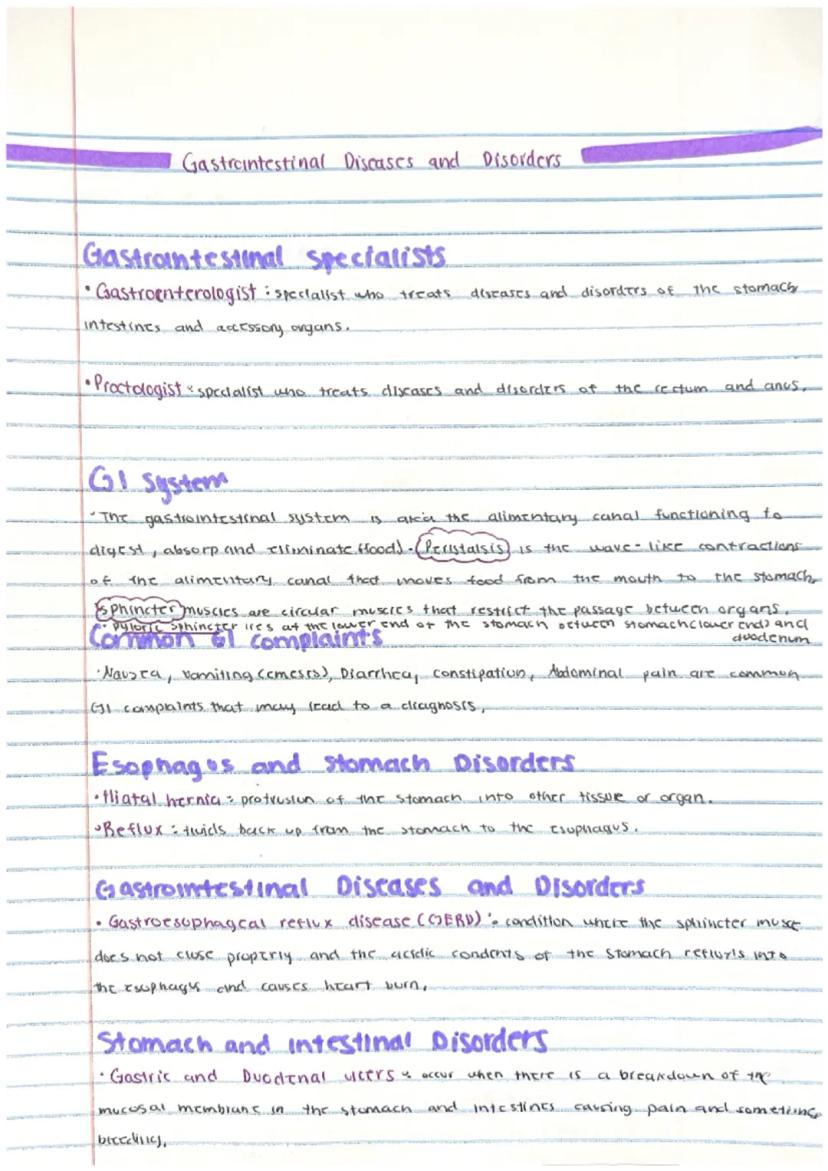 Gastrointestinal Diseases and Disorders
Gastrointestinal specialists
• Gastroenterologist : specialist who treats diseases and disorders of the stomach
intestines and accessory organs.
• Proctologist : specialist who treats diseases and disorders of the rectum and anus.
GI System
• The gastrointestinal system is a.k.a the alimentary canal functioning to
digest, absorp and eliminate (food). Peristalsis is the wave-like contractions
of the alimentary canal that moves food from the mouth to the stomach,
sphincter muscles are circular muscles that restrict the passage between organs.
• pyloric sphincter lies at the lower end of the stomach between stomach (lower end) and
duodenum
Common GI complaints
• Nausea, vomiting (emesis), Diarrhea, constipation, Abdominal pain are common
GI complaints that may lead to a diagnosis,
Esophagos and stomach Disorders
• Hiatal hernia : protrusion of the stomach into other tissue or organ.
• Reflux : fluids back up from the stomach to the esophagus.
Gastrointestinal Diseases and Disorders
• Gastroesophageal reflux disease (GERD) : condition where the sphincter musce
does not close properly and the acidic condents of the stomach into
the esophagus and causes heart burn,
Stomach and intestinal Disorders
• Gastric and Duodenal ulcers : occur when there is a breakdown of the
mucosal membrane in the stomach and intestines causing pain and sometimes
bleeding,